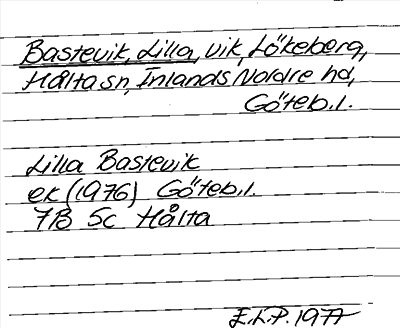 Bastevik, Lilla, vik, Lökeberg,
Hålta sn, Inlands Nordre hd,
Göteb. l.
Lilla Bastevik
ek (1976) Göteb. l.
7B 5c Hålta
E.L.P. 1977